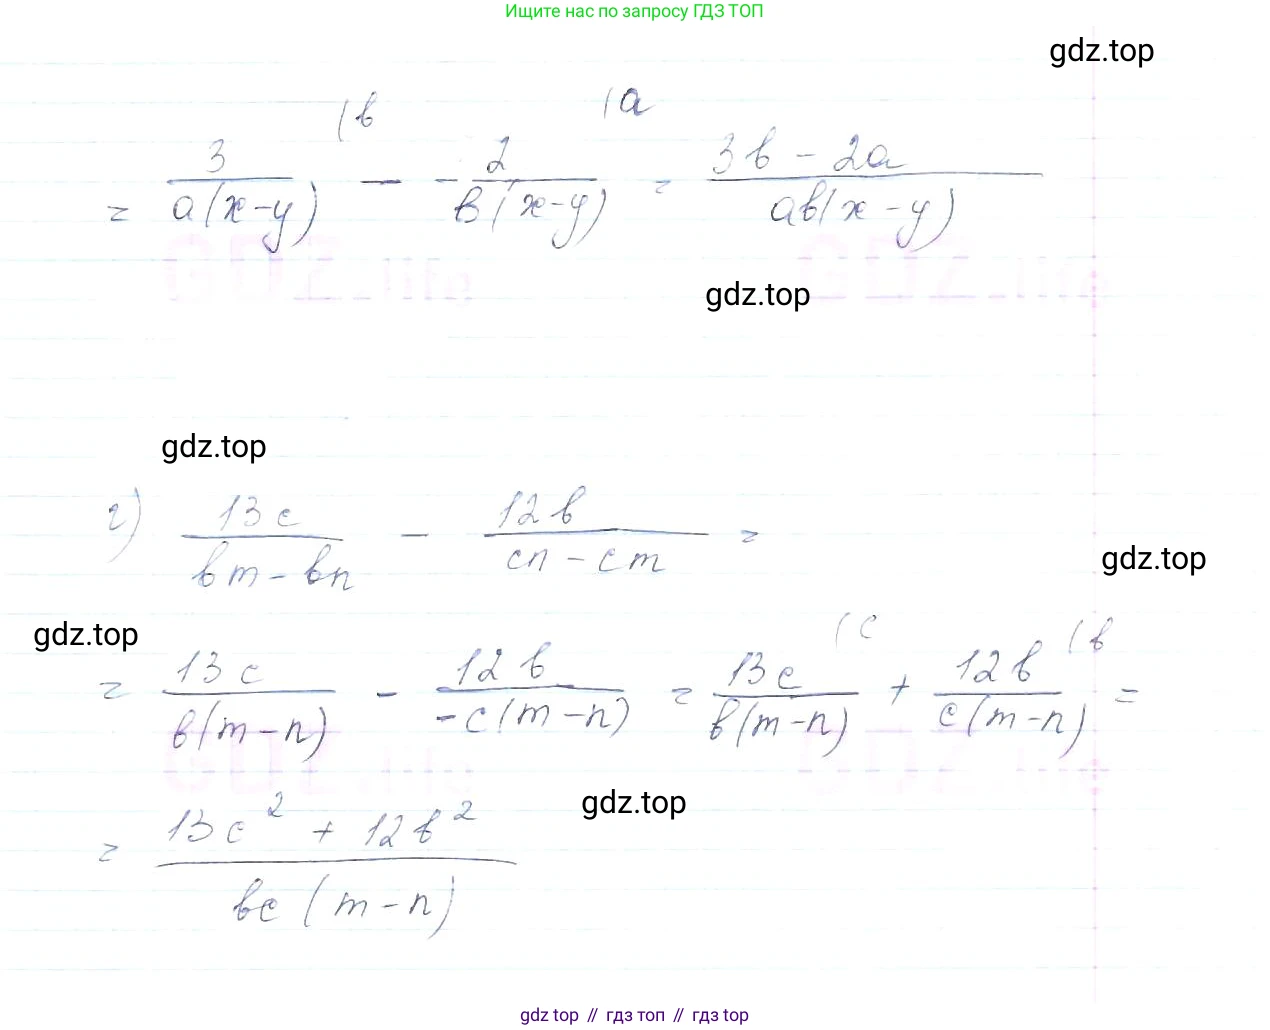 Ищите нас по запросу ГДЗ ТОП
gdz.top
(в (а
= 3/(a(x-y)) - - 2/(в(x-y)) = (3в - 2a)/(aв(x-y))
gdz.top
gdz.top
г) 13c/(вm-вn) - 12в/(cn-cm) =
gdz.top
gdz.top
(c (в
= 13c/(в(m-n)) - 12в/(-c(m-n)) = 13c/(в(m-n)) + 12в/(c(m-n)) =
gdz.top
= (13c² + 12в²)/(вc(m-n))
gdz.top // гдз топ // гдз top